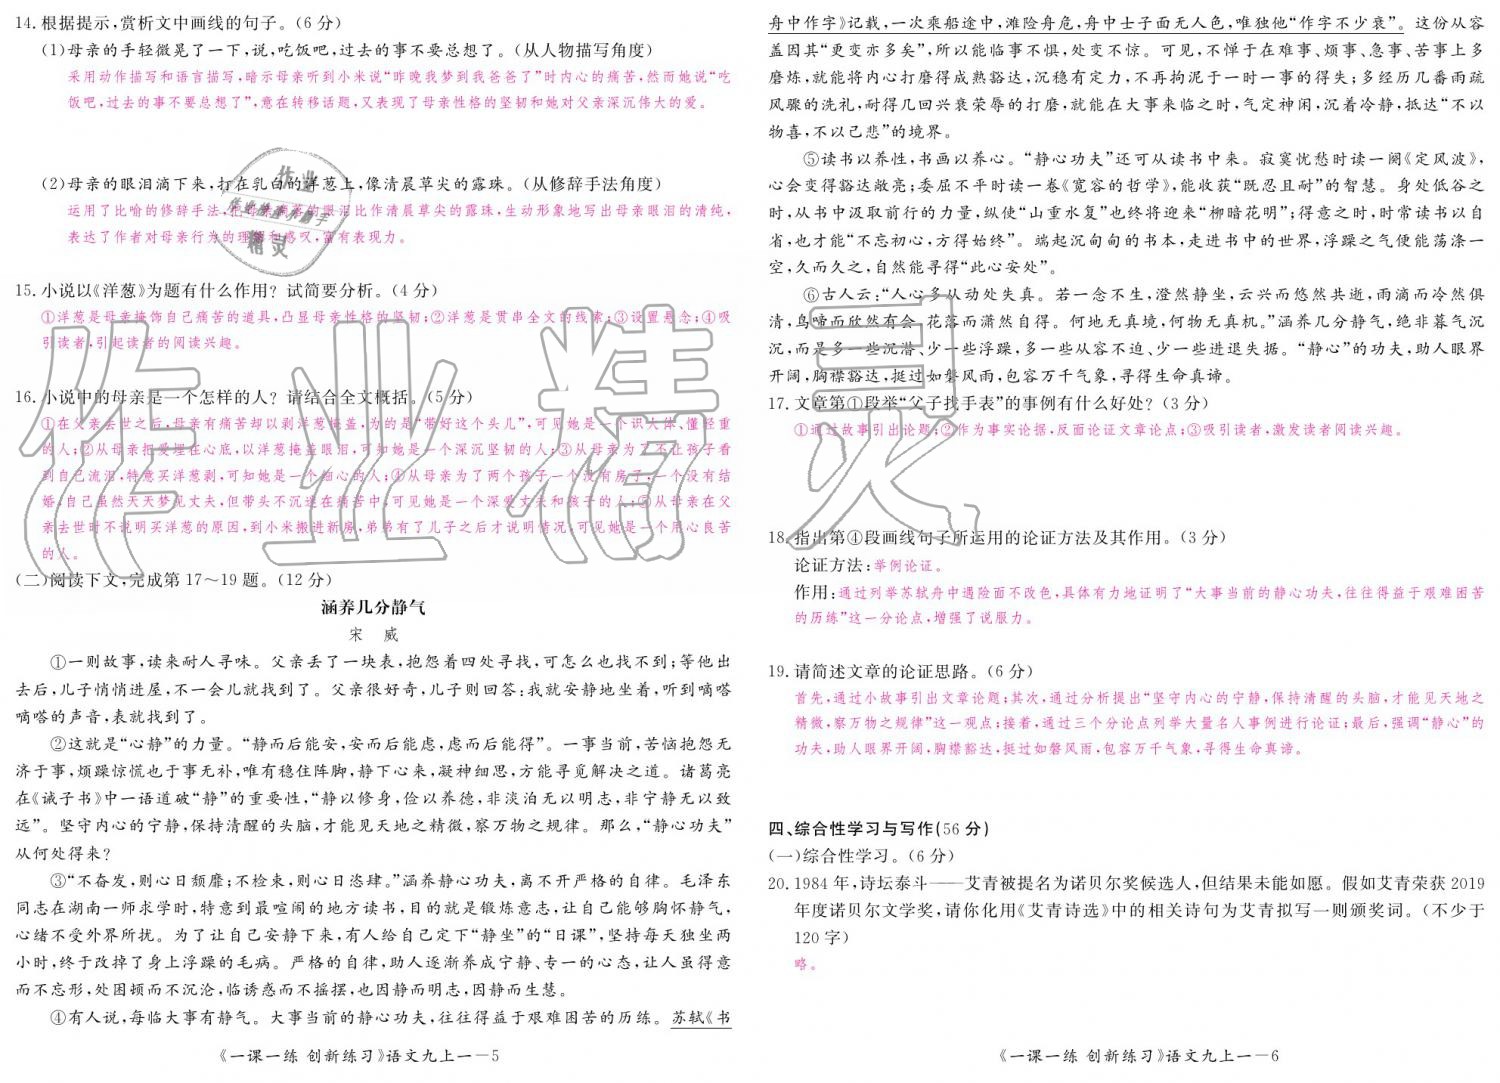 14.根据提示,赏析文中画线的句子。(6分)
(1)母亲的手轻微晃了一下,说,吃饭吧,过去的事不要总想了。(从人物描写角度)
采用动作描写和语言描写,暗示母亲听到小米说“昨晚我梦到我爸爸了”时内心的痛苦,然而她说“吃
饭吧,过去的事不要总想了”,意在转移话题,又表现了母亲性格的坚韧和她对父亲深沉伟大的爱。
(2)母亲的眼泪滴下来,打在乳白的洋葱上,像清晨草尖的露珠。(从修辞手法角度)
运用了比喻的修辞手法,把母亲滴落的眼泪比作清晨草尖的露珠,生动形象地写出母亲眼泪的清纯,
表达了作者对母亲行为的理解和感叹,富有表现力。
15.小说以《洋葱》为题有什么作用?试简要分析。(4分)
①洋葱是母亲掩饰自己痛苦的道具,凸显母亲性格的坚韧;②洋葱是贯串全文的线索;③设置悬念;④吸
引读者,引起读者的阅读兴趣。
16.小说中的母亲是一个怎样的人?请结合全文概括。(5分)
①在父亲去世之后,母亲有痛苦却以剥洋葱掩盖,为的是“带好这个头儿”,可见她是一个识大体、懂轻重
的人;②从母亲把爱埋在心底,以洋葱掩盖眼泪,可知她是一个深沉坚韧的人;③从母亲为了不让孩子看
到自己流泪,特意买洋葱剥,可知她是一个细心的人;④从母亲为了两个孩子一个没有房子,一个没有结
婚,自己虽然天天梦见丈夫,但带头不沉迷在痛苦中,可见她是一个深爱丈夫和孩子的人;⑤从母亲在父
亲去世时不说明买洋葱的原因,到小米搬进新房,弟弟有了儿子之后才说明情况,可见她是一个用心良苦
的人。
(二)阅读下文,完成第17～19题。(12分)
涵养几分静气
宋 威
①一则故事,读来耐人寻味。父亲丢了一块表,抱怨着四处寻找,可怎么也找不到;等他出
去后,儿子悄悄进屋,不一会儿就找到了。父亲很好奇,儿子则回答:我就安静地坐着,听到嘀嗒
嘀嗒的声音,表就找到了。
②这就是“心静”的力量。“静而后能安,安而后能虑,虑而后能得”。一事当前,苦恼抱怨无
济于事,烦躁惊慌也于事无补,唯有稳住阵脚,静下心来,凝神细思,方能寻觅解决之道。诸葛亮
在《诫子书》中一语道破“静”的重要性,“静以修身,俭以养德,非淡泊无以明志,非宁静无以致
远”。坚守内心的宁静,保持清醒的头脑,才能见天地之精微,察万物之规律。那么,“静心功夫”
从何处得来?
③“不奋发,则心日颓靡;不检束,则心日恣肆。”涵养静心功夫,离不开严格的自律。毛泽东
同志在湖南一师求学时,特意到最喧闹的地方读书,目的就是锻炼意志,让自己能够胸怀静气,
心绪不受外界所扰。为了让自己安静下来,有人给自己定下“静坐”的“日课”,坚持每天独坐两
小时,终于改掉了身上浮躁的毛病。严格的自律,助人逐渐养成宁静、专一的心态,让人虽得意
而不忘形,处困顿而不沉沦,临诱惑而不摇摆,也因静而明志,因静而生慧。
④有人说,每临大事有静气。大事当前的静心功夫,往往得益于艰难困苦的历练。苏轼《书
《一课一练 创新练习》语文九上一—5
舟中作字》记载,一次乘船途中,滩险舟危,舟中士子面无人色,唯独他“作字不少衰”。这份从容
盖因其“更变亦多矣”,所以能临事不惧,处变不惊。可见,不惮于在难事、烦事、急事、苦事上多
磨炼,就能将内心打磨得成熟豁达,沉稳有定力,不再拘泥于一时一事的得失;多经历几番雨疏
风骤的洗礼,耐得几回兴衰荣辱的打磨,就能在大事来临之时,气定神闲,沉着冷静,抵达“不以
物喜,不以己悲”的境界。
⑤读书以养性,书画以养心。“静心功夫”还可从读书中来。寂寞忧愁时读一阕《定风波》,
心会变得豁达敞亮;委屈不平时读一卷《宽容的哲学》,能收获“既忍且耐”的智慧。身处低谷之
时,从书中汲取前行的力量,纵使“山重水复”也终将迎来“柳暗花明”;得意之时,时常读书以自
省,也才能“不忘初心,方得始终”。端起沉甸甸的书本,走进书中的世界,浮躁之气便能荡涤一
空,久而久之,自然能寻得“此心安处”。
⑥古人云:“人心多从动处失真。若一念不生,澄然静坐,云兴而悠然共逝,雨滴而冷然俱
清,鸟啼而欣然有会,花落而潇然自得。何地无真境,何物无真机。”涵养几分静气,绝非暮气沉
沉,而是多一些沉潜、少一些浮躁,多一些从容不迫、少一些进退失据。“静心”的功夫,助人眼界
开阔,胸襟豁达,挺过如磐风雨,包容万千气象,寻得生命真谛。
17.文章第①段举“父子找手表”的事例有什么好处?(3分)
①通过故事引出论题;②作为事实论据,反面论证文章论点;③吸引读者,激发读者阅读兴趣。
18.指出第④段画线句子所运用的论证方法及其作用。(3分)
论证方法:举例论证。
作用:通过列举苏轼舟中遇险面不改色,具体有力地证明了“大事当前的静心功夫,往往得益于艰难困苦
的历练”这一分论点,增强了说服力。
19.请简述文章的论证思路。(6分)
首先,通过小故事引出文章论题;其次,通过分析提出“坚守内心的宁静,保持清醒的头脑,才能见天地之
精微,察万物之规律”这一观点;接着,通过三个分论点列举大量名人事例进行论证;最后,强调“静心”的
功夫,助人眼界开阔,胸襟豁达,挺过如磐风雨,包容万千气象,寻得生命真谛。
四、综合性学习与写作(56分)
(一)综合性学习。(6分)
20.1984年,诗坛泰斗——艾青被提名为诺贝尔奖候选人,但结果未能如愿。假如艾青荣获2019
年度诺贝尔文学奖,请你化用《艾青诗选》中的相关诗句为艾青拟写一则颁奖词。(不少于
120字)
略。
《一课一练 创新练习》语文九上一—6
作业精灵
作业
精灵